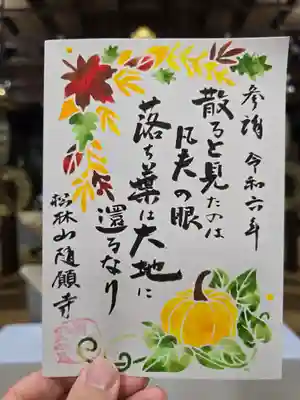 参詣 令和六年
散ると見たのは
凡夫の眼
落ち葉は大地に
還るなり
松林山随願寺